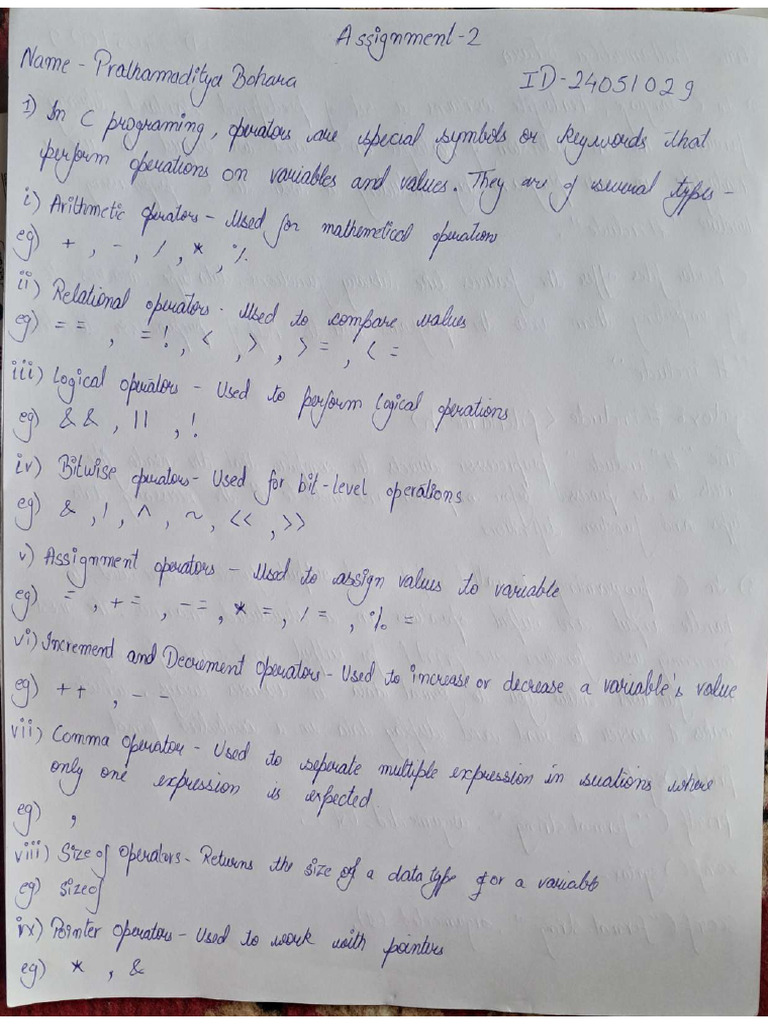 Assignment-2
Name - Prathamaditya Bohara ID-24051029
1) In C programing, operators are special symbols or keywords that
perform operations on variables and values. They are of several types -
i) Arithmetic operators - Used for mathemetical operation
eg) + , - , / , * , %
ii) Relational operators - Used to compare values
eg) = = , = ! , < , > , > = , < =
iii) Logical operators - Used to perform logical operations
eg) && , || , !
iv) Bitwise operators - Used for bit-level operations
eg) & , | , ^ , ~ , << , >>
v) Assignment operators - Used to assign values to variable
eg) = , + = , - = , * = , / = , % =
vi) Increment and Decrement operators - Used to increase or decrease a variable's value
eg) ++ , - -
vii) Comma operator - Used to seperate multiple expression in suations where
only one expression is expected
eg) ,
viii) Size of operators - Returns the size of a data type or a variable
eg) sizeof
ix) Pointer operators - Used to work with pointers
eg) * , &